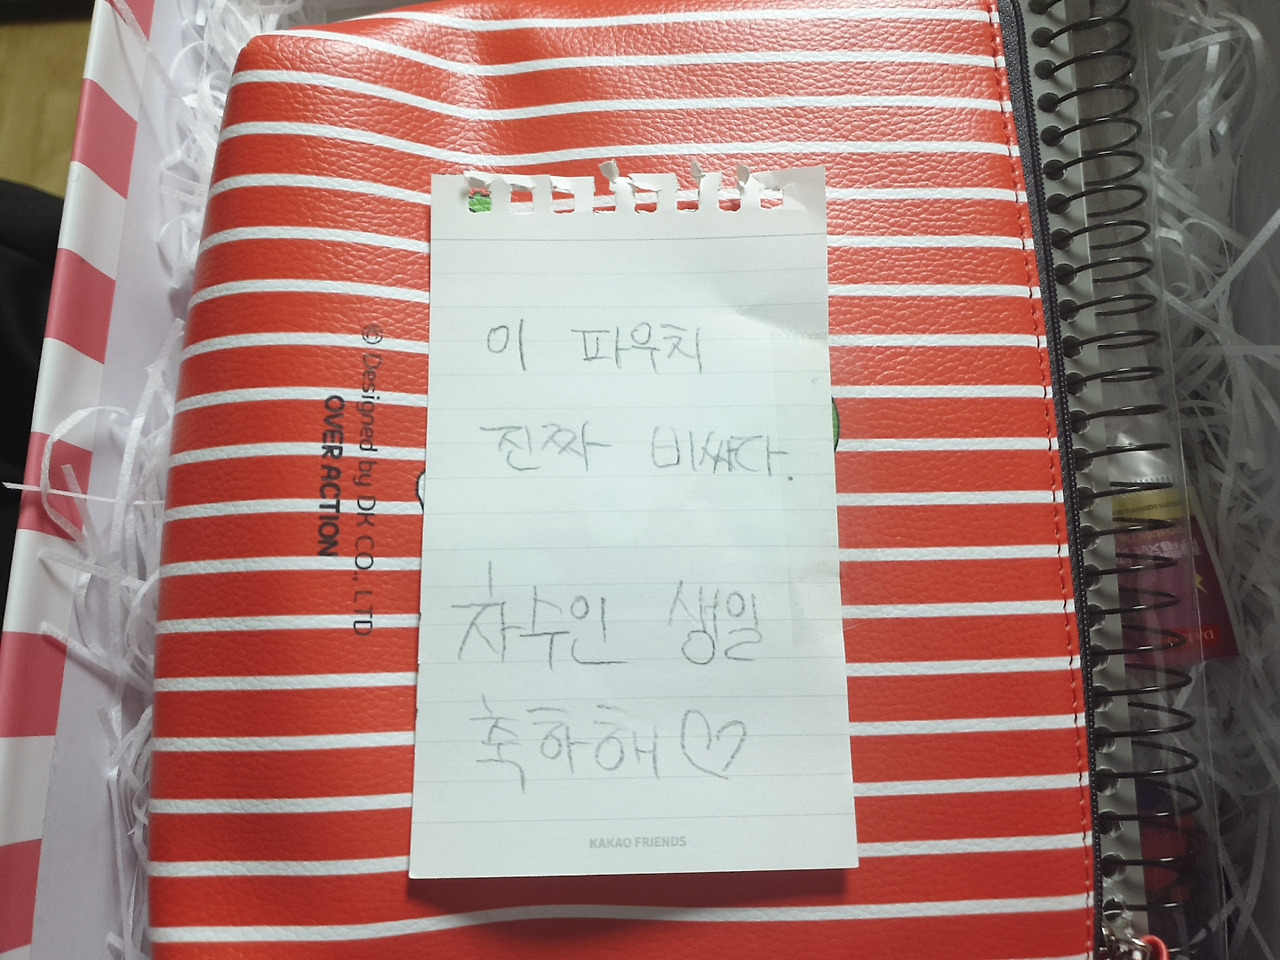 이 파우치
진짜 비싸다.
차수인 생일
축하해♡
KAKAO FRIENDS
© Designed by DK CO., LTD
OVER ACTION